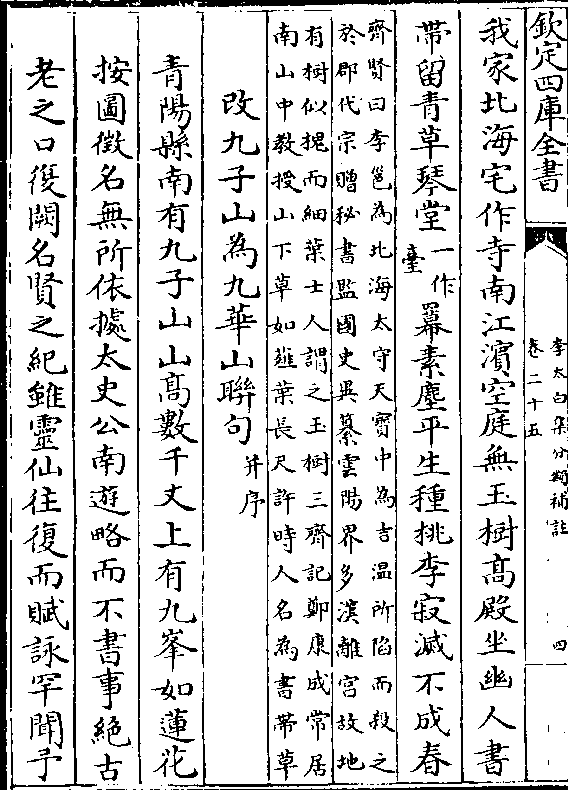 欽定四庫全書
李太白集分類補註
卷二十五
四
我家北海宅作寺南江濵空庭無玉樹髙殿坐幽人書
帶留青草琴堂一作臺羃素塵平生種桃李寂滅不成春
齊賢曰李邕為北海太守天寶中為吉温所陷而殺之
於郡代宗贈秘書監國史異纂雲陽界多漢離宫故地
有樹似槐而細葉士人謂之玉樹三齊記鄭康成常居
南山中教授山下草如薤葉長尺許時人名為書帶草
改九子山為九華山聯句并序
青陽縣南有九子山山髙數千丈上有九峯如蓮花
按圖徵名無所依據太史公南遊略而不書事絶古
老之口復闕名賢之紀雖靈仙往復而賦詠罕聞予